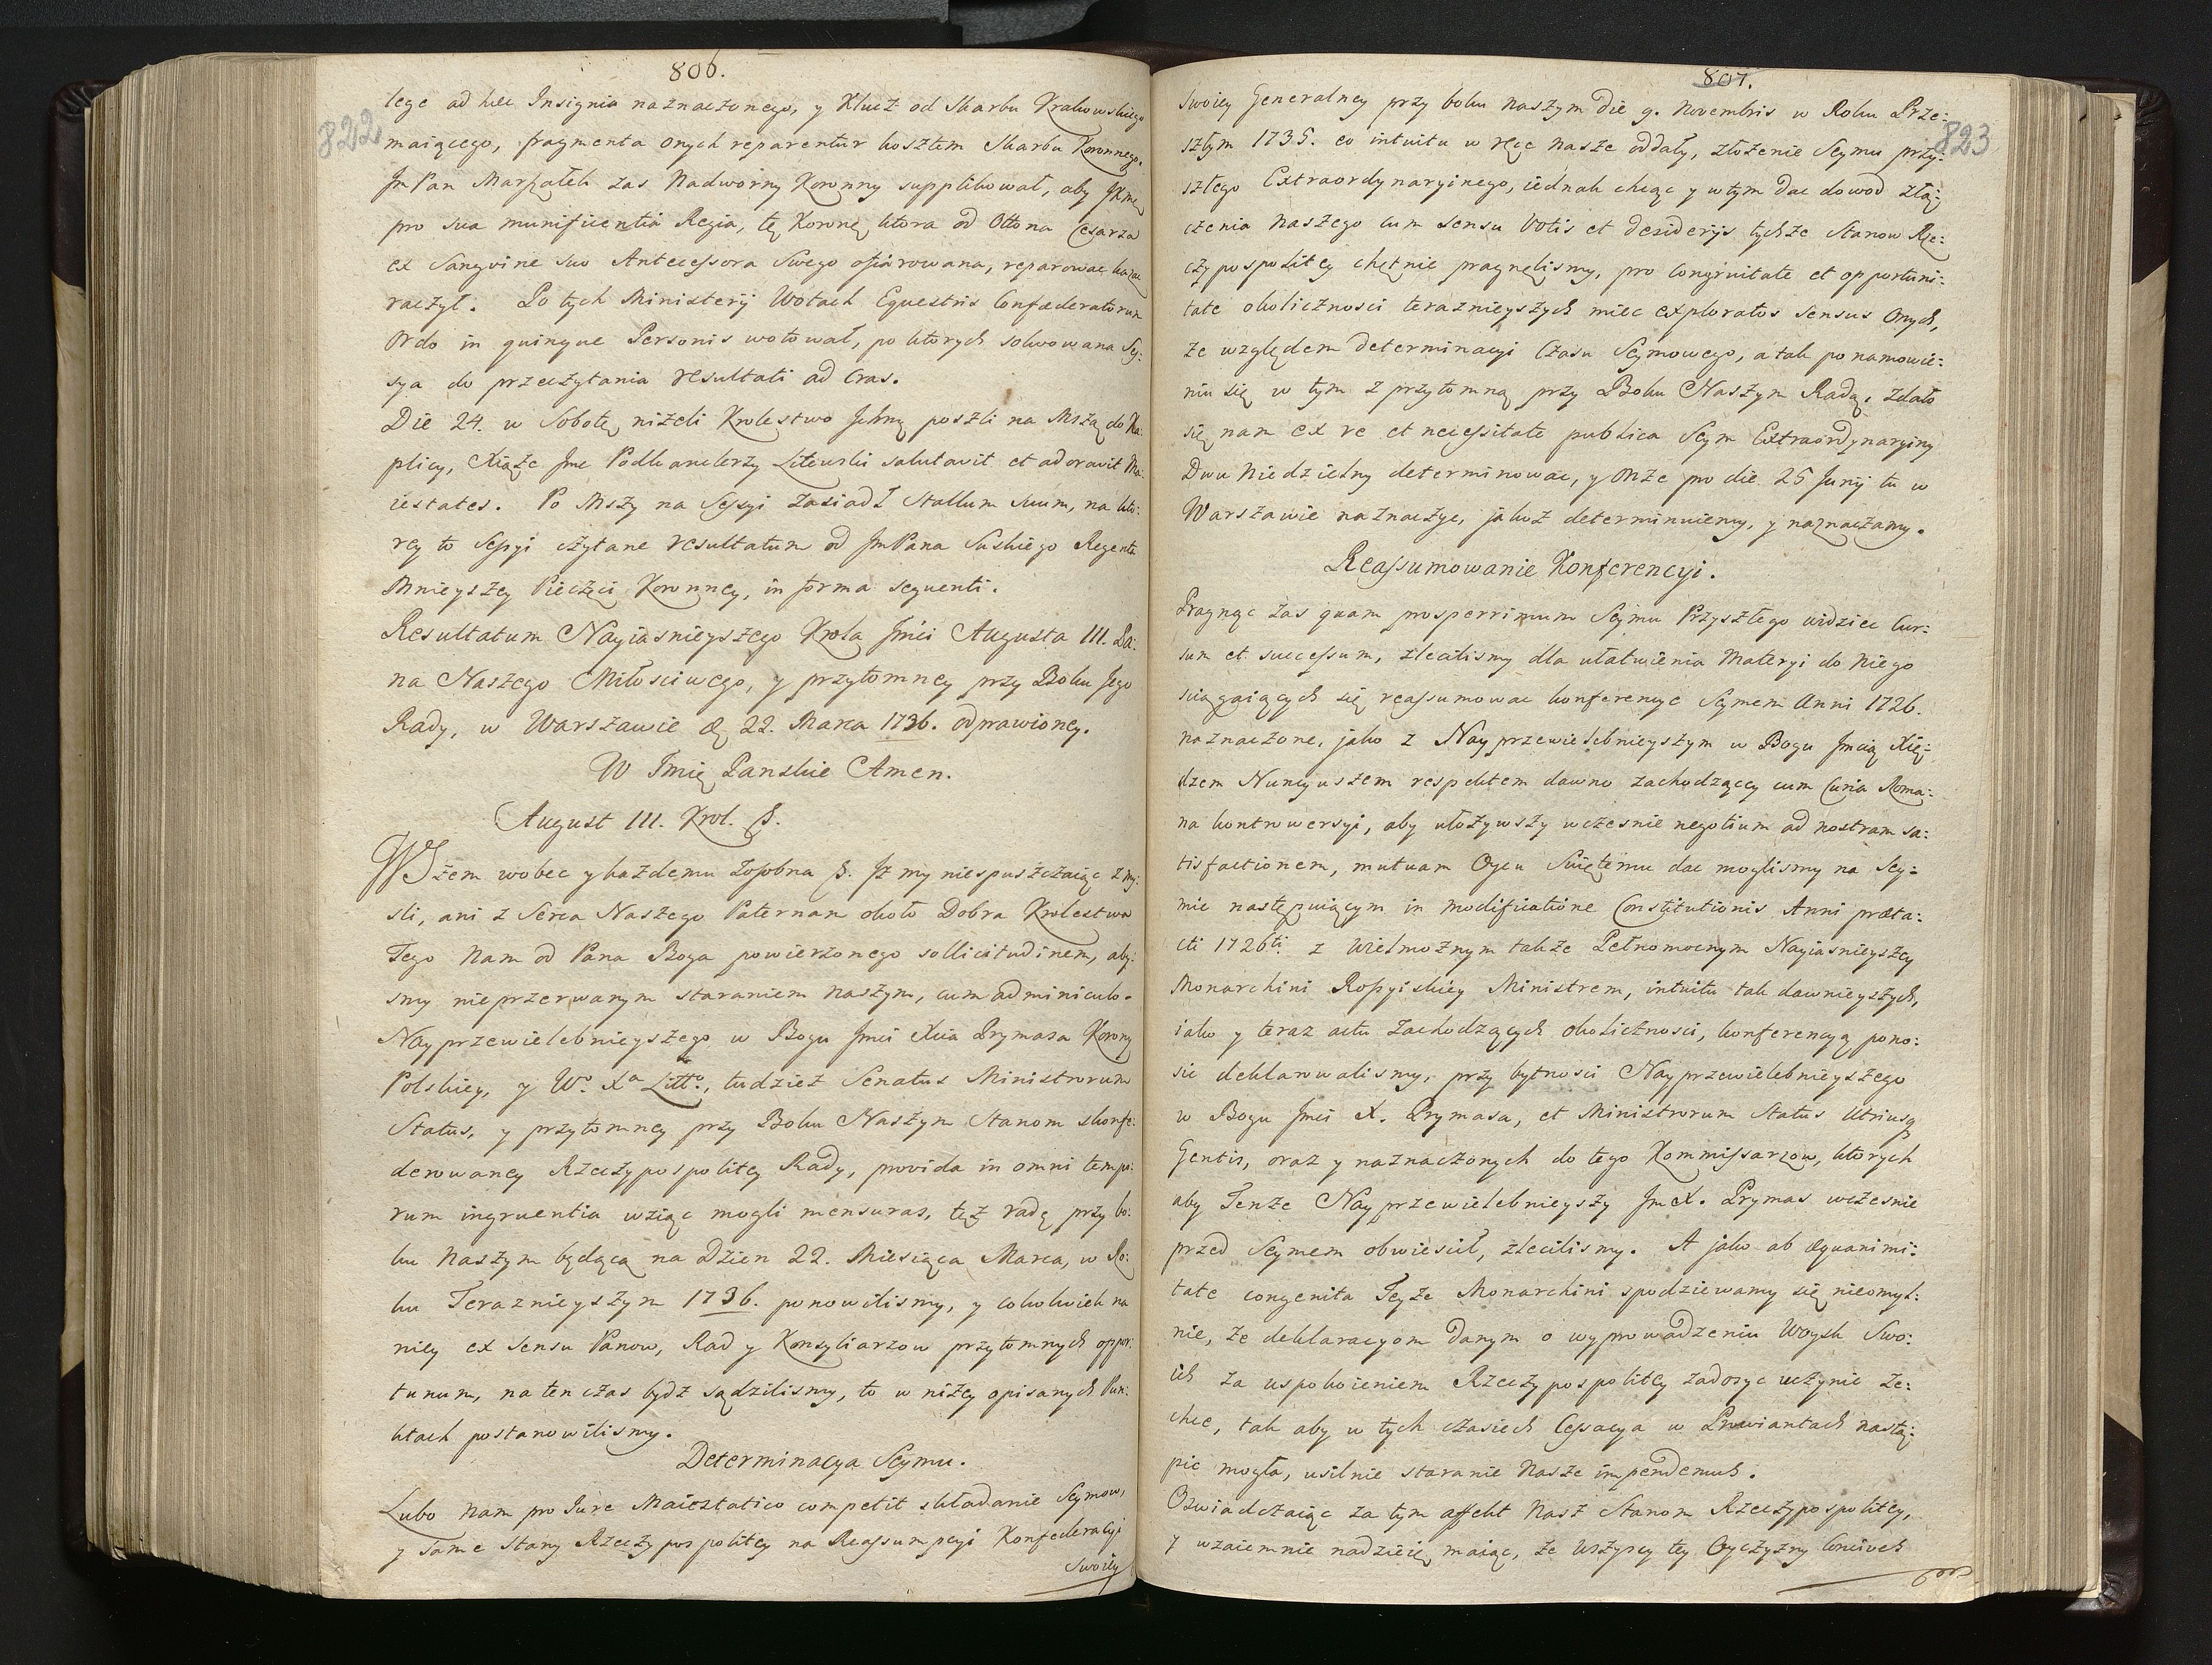 806.
822
lege ad hec Insignia naznaczonego, y Klucz od Skarbu Krakowskiego
maiącego, fragmenta onych reparentur kosztem Skarbu Koronnego.
Jm Pan Marszałek zas Nadworny Koronny supplikował, aby JKMć
pro sua munificentia Regia, tę Koronę ktora od Ottona Cesarza
ex Sangvine suo Antecessora Swego ofiarowana, reparować kazać
raczył. Po tych Ministerij Wotach Equestris Confæderatorum
Ordo in quinque Personis wotował, po ktorych solwowana Se-
sya do przeczytania resultati ad Cras.
Die 24. w Sobotę niżeli Krolestwo Ichmć poszli na Mszą do Ka-
plicy, Xiąże Jmc Podkanclerzy Litewski salutavit et adoravit Ma-
iestates. Po Mszy na Sessyi zasiadł Stallum suum, na kto-
rey to Sessyi czytane resultatum od JmPana Suskiego Regenta
Mnieyszey Pieczęci Koronney, in forma sequenti.
Resultatum Nayiasnieyszego Krola Jmści Augusta III. Pa-
na Naszego Miłosciwego, y przytomney przy Boku Jego
Rady, w Warszawie D. 22. Marca 1736. odprawioney.
W Imię Panskie Amen.
August III. Krol. &.
WSzem wobec y każdemu zosobna &. Iż my niespuszczaiąc z my-
sli, ani z Serca Naszego Paternam około Dobra Krolestwa
Tego Nam od Pana Boga powierzonego sollicitudinem, aby-
smy nieprzerwanym staraniem naszym, cum adminiculo
Nayprzewielebnieyszego w Bogu Jmci Xia Prymasa Korony
Polskiey, y Wo. Xa Litto., tudziez Senatus Ministrorum
Status, y przytomney przy Boku Naszym Stanom skonfe-
derowaney Rzeczypospolitey Rady, provida in omni tempo-
rum ingruentia wziąc mogli mensuras, tęż radę przy bo-
ku Naszym będącą na Dzien 22. Miesiąca Marca, w Ro-
ku Teraznieyszym 1736. ponowilismy, y cokolwiek na
niey ex sensu Panow, Rad y Konsyliarzow przytomnych oppor-
tunum, na ten czas bydz sądzilismy, to w niżey opisanych Pun-
ktach postanowilismy.
Determinacya Seymu.
Lubo Nam pro Jure Maiestatico competit składanie Seymow,
y same Stany Rzeczypospolitey na Reassumpcyi Konfederacyi
swoiey
807.
823
swoiey Generalney przy boku naszym die 9. Novembris w Roku Prze-
szłym 1735. eo intuitu w ręce nasze oddały, złożenie Seymu przy-
szłego Extraordynaryinego, iednak chcąc y w tym dac dowod złą-
czenia Naszego cum sensu Votis et desiderijs tychże Stanow Rze-
czypospolitey chętnie pragnęlismy, pro Congruitate et opportuni-
tate okolicznosci teraznieyszych miec exploratos sensus onych,
ze względem determinacyi Czasu Seymowego, a tak po namowie-
niu się w tym z przytomną przy Boku Naszym Radą, zdało
się nam ex re et necessitate publica Seym Extraordynaryiny
Dwu Niedzielny determinowac, y onze pro die 25 Junij tu w
Warszawie naznaczyc, jakoż determinuiemy, y naznaczamy.
Reassumowanie Konferencyi.
Pragnąc zas quam prosperrimum Seymu Przyszłego widziec Cur-
sum et successum, zlecilismy dla ułatwienia Materyi do niego
sciągaiących się reassumowac konferencye Seymem Anni 1726.
naznaczone, jako z Nayprzewielebnieyszym w Bogu Jmcią Xię-
dzem Nuncyuszem respektem dawno zachodzącey cum Curia Roma-
na kontrowersyi, aby ułożywszy wczesnie negotium ad nostram sa-
tisfactionem, mutuam Oycu Swiętemu dac moglismy na Sey-
mie następuiącym in modificatione Constitutionis Anni præta-
cti 1726ti. z Wielmożnym także Pełnomocnym Nayiasnieyszey
Monarchini Rossyiskiey Ministrem, intuitu tak dawnieyszych,
iako y teraz actu zachodzących okolicznosci, konferencyą pono-
sic deklarowalismy, przy bytnosci Nayprzewielebnieyszego
w Bogu Jmci X. Prymasa, et Ministrorum Status Utriusq
Gentis, oraz y naznaczonych do tego Kommissarzow, ktorych
aby Tenże Nayprzewielebnieyszy Jm X. Prymas wczesnie
przed Seymem obwiescił, zlecilismy. A jako ab æquanimi-
tate congenita Teyże Monarchini spodziewamy się nieomyl-
nie, że deklaracyom danym o wyprowadzeniu Woysk Swo-
ich za uspokoieniem Rzeczypospolitey zadosyc uczynic ze-
chce, tak aby w tych czasiech Cessacya w Prowiantach nastą-
pic mogła, usilnie staranie Nasze impendemus.
Oswiadczaiąc za tym affekt Nasz Stanom Rzeczypospolitey,
y wzaiemnie nadzieię maiąc, że wszyscy tey Oyczyzny Concives